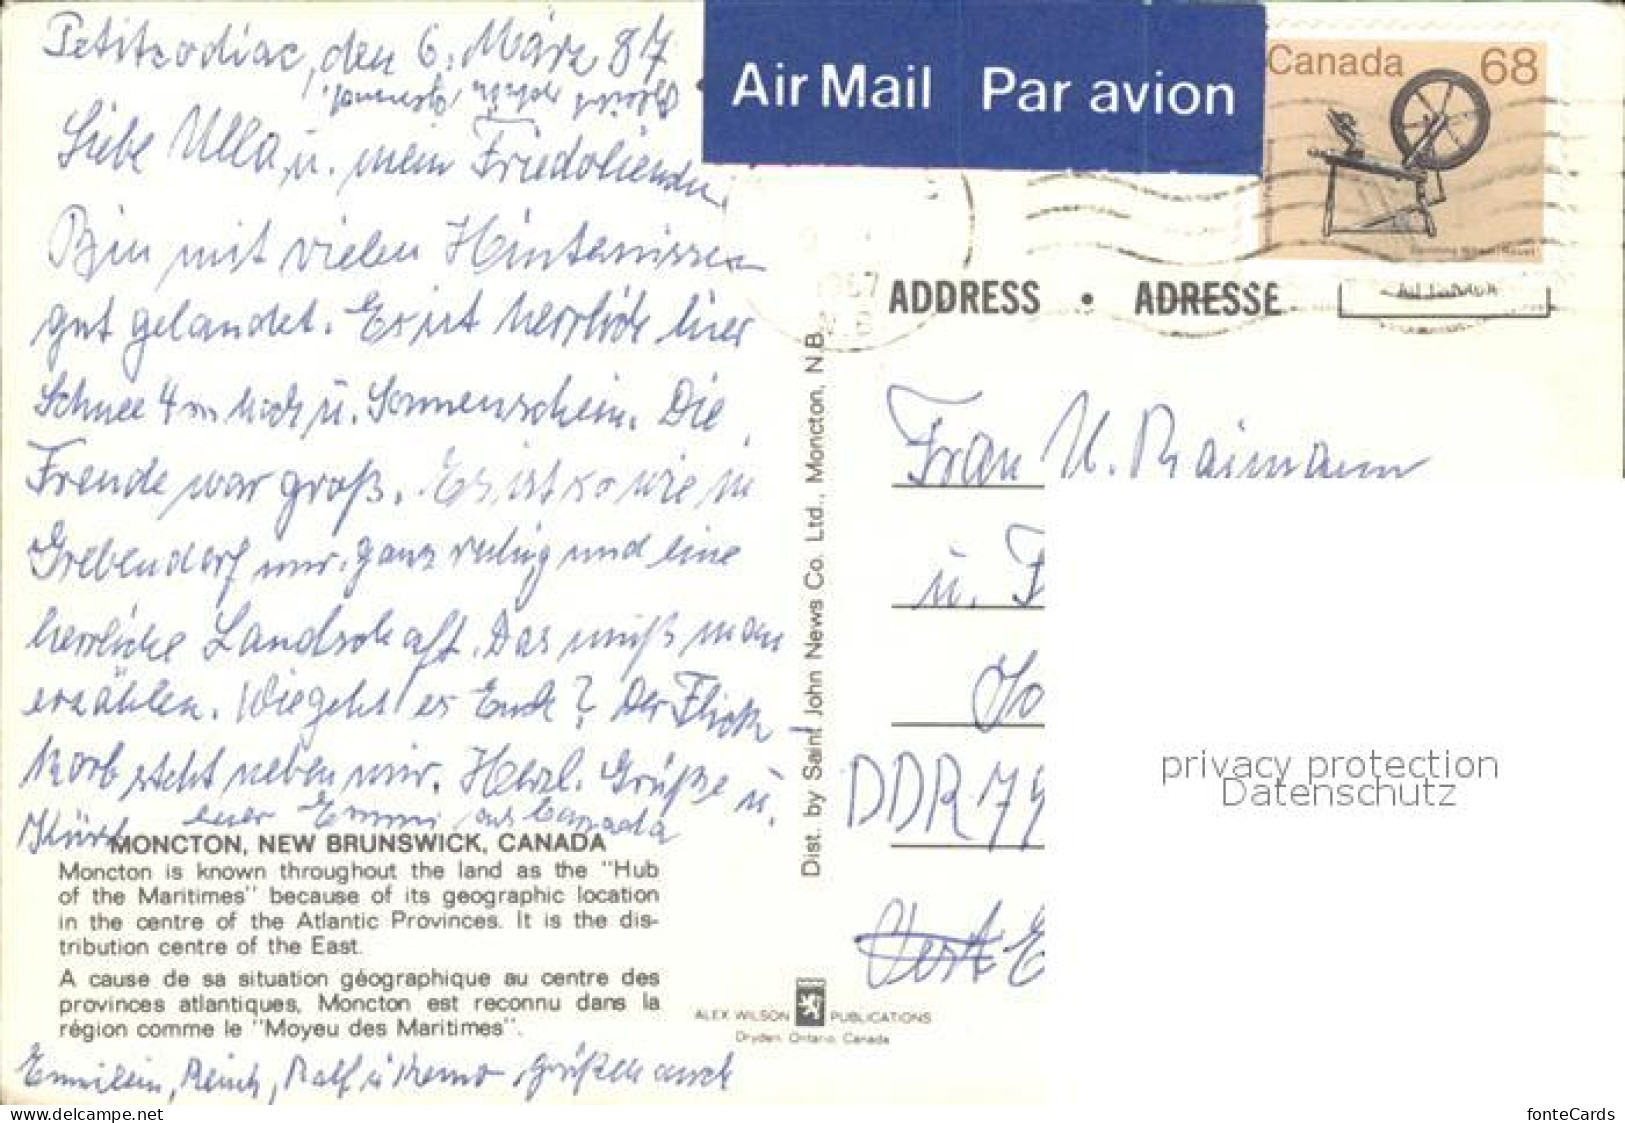 Petitcodiac, den 6. März 87
Liebe Ulla u. mein Friedolienchen,
Bin mit vielen Hinternissen
gut gelandet. Es ist herrlich hier
Schnee 4 m hoch u. Sonnenschein. Die
Freude war groß. Es ist so wie in
Grebendorf nur ganz ruhig und eine
herrliche Landschaft. Das muß man
erzählen. Wie geht es Euch? Der Flick
korb steht neben mir. Herzl. Grüße u.
Küsse eurer Emmi aus Canada
MONCTON, NEW BRUNSWICK, CANADA
Moncton is known throughout the land as the "Hub
of the Maritimes" because of its geographic location
in the centre of the Atlantic Provinces. It is the dis-
tribution centre of the East.
A cause de sa situation géographique au centre des
provinces atlantiques, Moncton est reconnu dans la
région comme le "Moyeu des Maritimes".
Emilein, Ralf u grüßen auch
Dist. by Saint John News Co. Ltd., Moncton, N.B.
ALEX WILSON PUBLICATIONS
Dryden, Ontario, Canada
Air Mail Par avion
Canada 68
ADDRESS • ADRESSE
Frau U. Raimann
u. F
DDR 79
privacy protection
Datenschutz
www.delcampe.net
fonteCards